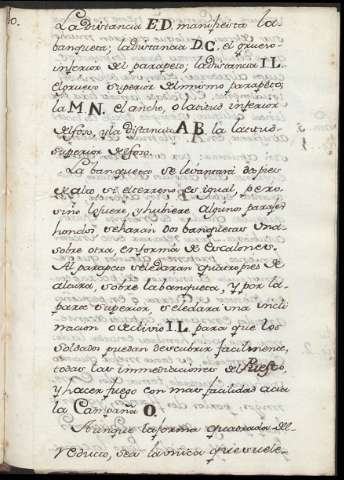 La distancia E.D. manifiesta la
banqueta; la distancia D.C. el grueso
inferior del parapeto; la distancia I L.
el grueso superior del mismo parapeto;
la M.N. el ancho, o latitud inferior
del foso, y la distancia A.B. la latitud
superior del foso.
La banqueta se levantará dos pies
de alto si el terreno es igual, pero
sino lo fuere, y hubiere algunos parages
hondos se haran dos banquetas una
sobre otra en forma de Escalones.
Al parapeto se le daran quatro pies de
altura, sobre la banqueta, y por la
parte superior, se le dara una incli
nacion o declivio I L. para que los
soldados puedan descubrir facilmente,
todas las inmediaciones del Puesto,
y hacer fuego con mas facilidad acia
la Campaña O.
Aunque la forma quadrada del
reducto, sea la unica que suele-